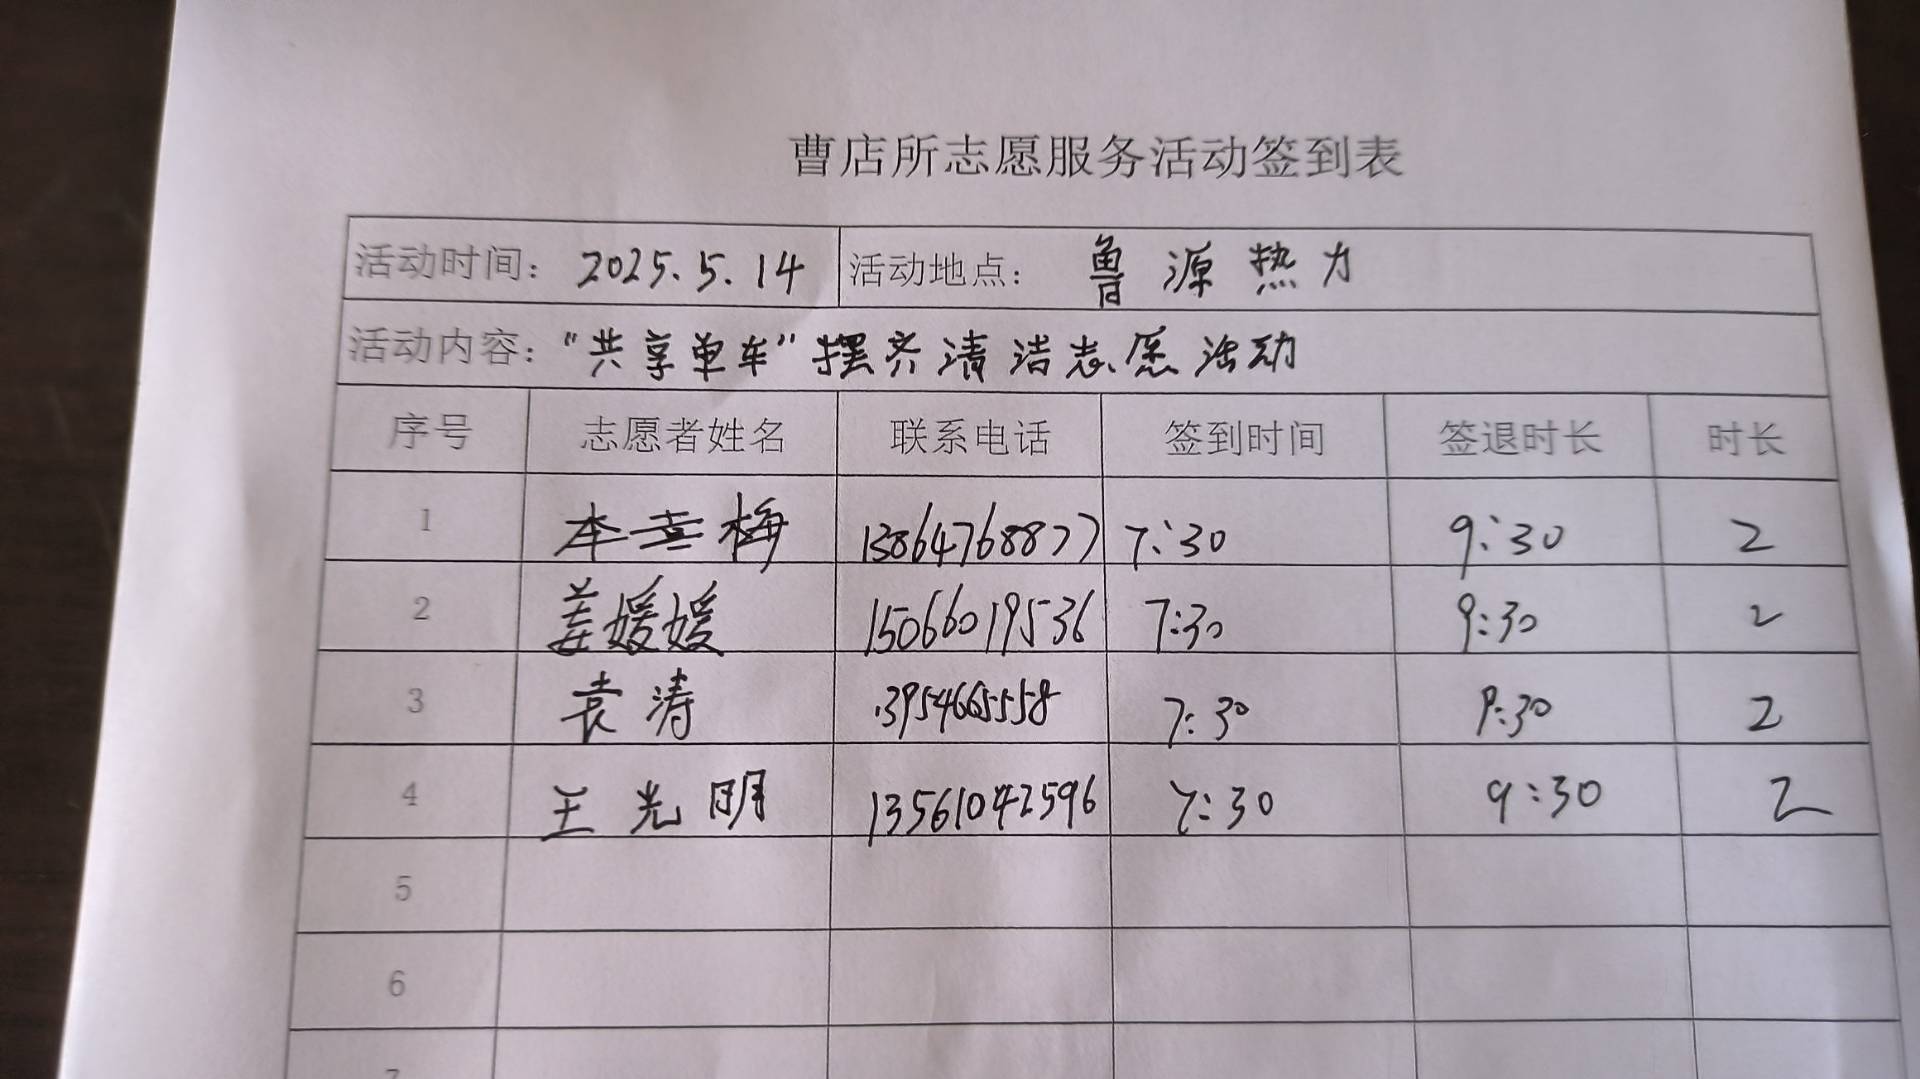 曹店所志愿服务活动签到表
活动时间: 2025.5.14 活动地点: 鲁源热力
活动内容: "共享单车"摆齐清洁志愿活动
序号 志愿者姓名 联系电话 签到时间 签退时长 时长
1 梅 13864768877 7:30 9:30 2
2 姜媛媛 15066019536 7:30 9:30 2
3 袁涛 13954665558 7:30 9:30 2
4 王光明 13561042596 7:30 9:30 2
5
6
7